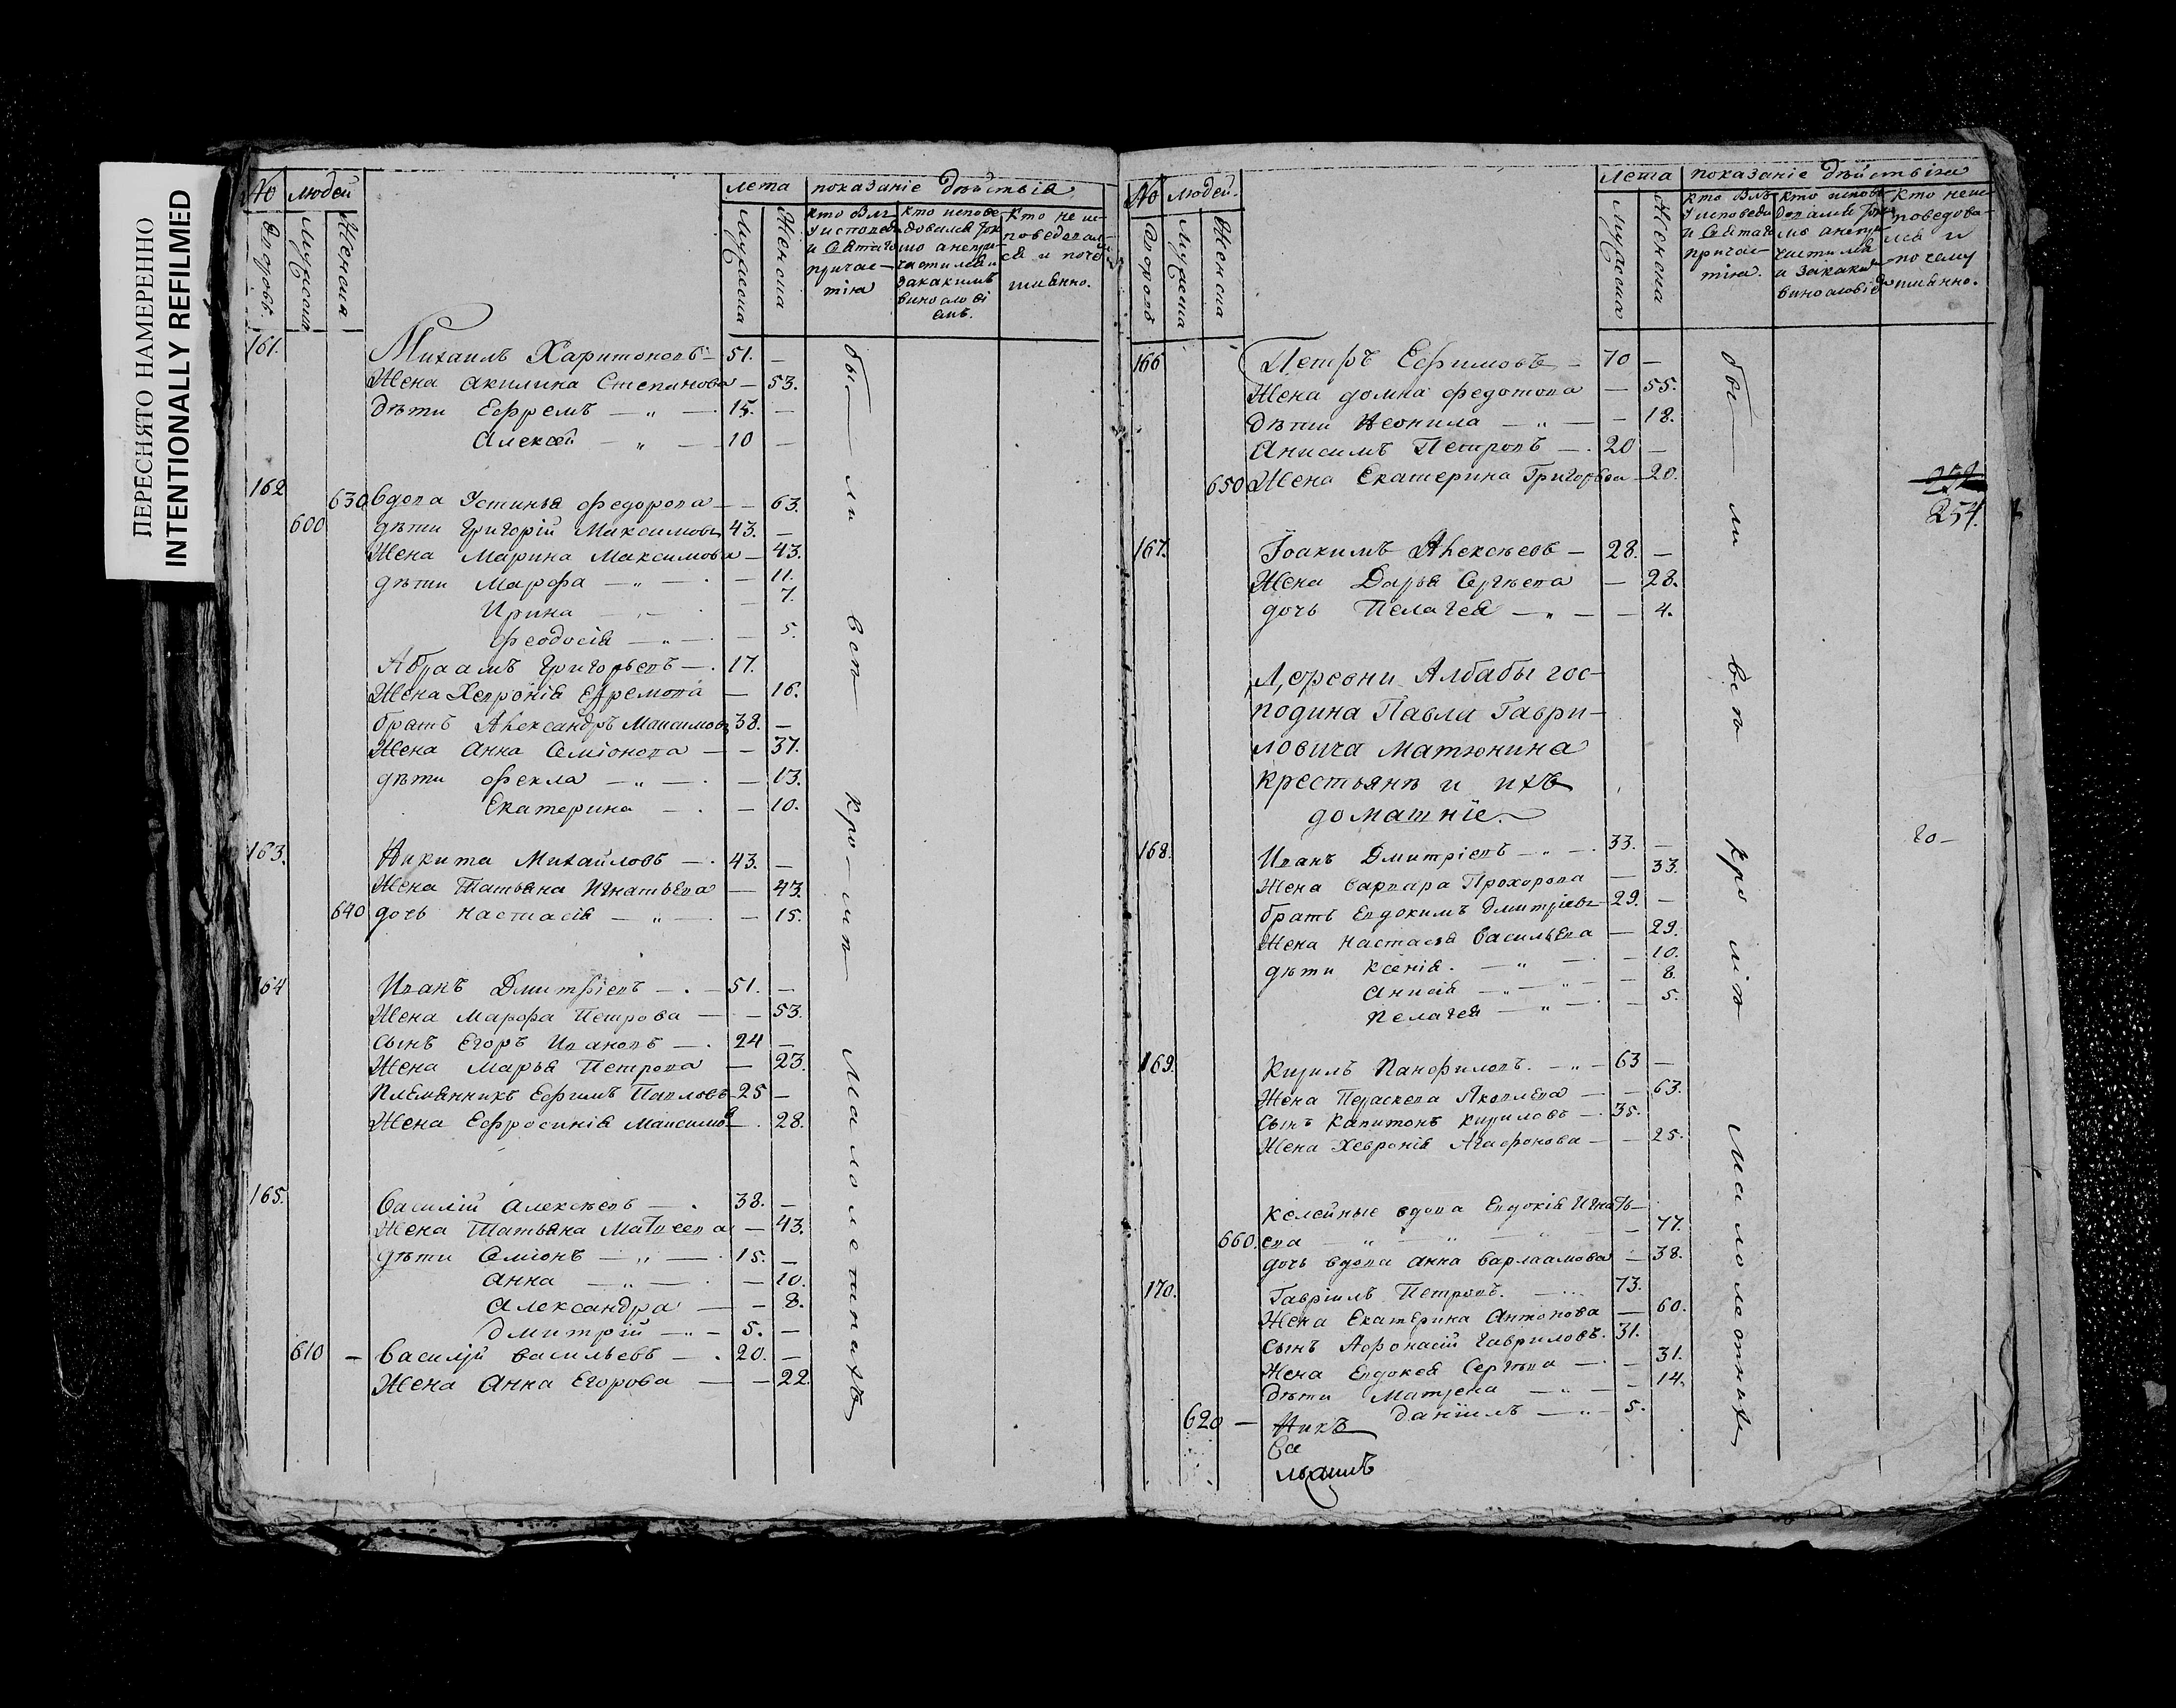 ПЕРЕСНЯТО НАМЕРЕННО
INTENTIONALLY REFILMED
№ людей
лета показаніе дѣйствія
Дворовъ.
Мужеска
Женска
Мужеска
Женска
кто былъ у исповеди и Святаго причастія
кто исповедовался токмо а непричастился и закакимъ винословіемъ.
Кто не исповедался и почему имянно.
161. Михаилъ Харитоновъ — 51. —
Жена Акилина Степанова — 53.
дѣти Ефремъ — „ — 15. —
Алексей — „ — 10 —
162 630 Вдова Устинья Федорова — — 63.
600 дѣти Григорій Максимовъ 43. —
Жена Марина Максимова — 43.
дѣти Марфа — „ — . — 11.
Ирина — 7.
Феодосія — „ — . — 5.
Абраамъ Григорьевъ — . 17.
Жена Хевронія Ефремова — 16.
братъ Александръ Максимовъ 38. —
Жена Анна Семіонова — — 37.
дѣти Фекла — „ — . — 13.
Екатерина — . — 10.
163. Никита Михайловъ — . 43. —
Жена Татьяна Игнатьева — 43.
640 дочь Настасія — „ — — 15.
164 Иванъ Дмитріевъ — . — 51. —
Жена Марфа Петрова — — 53.
Сынъ Егоръ Ивановъ — . 24 —
Жена Марья Петрова — 23.
Племянникъ Ефимъ Павловъ — 25 —
Жена Ефросинія Максимова — . 28.
165. Василій Алексѣевъ — . 38. —
Жена Татьяна Матвеева — 43.
дѣти Семіонъ — „ — . 15. —
Анна — „ — . — 10.
Александра — — 8.
Дмитрій — „ — 5. —
610 — Василій Васильевъ — . 20. —
Жена Анна Егорова — — 22.
бы— ли всѣ кро— мѣ малолетнихъ
№ людей.
лета показаніе дѣйствія
Дворовъ
Мужеска
Женска
Мужеска
Женска
166 Петръ Ефимовъ — 70 —
Жена Домна Федотова — 55.
дѣти Неонила — „ — — 18.
Анисимъ Петровъ — . 20 —
650 Жена Екатерина Григорьева — 20.
254.
167. Іоакимъ Алексѣевъ — 28. —
Жена Дарья Сергѣева — 28.
дочь Пелагея — „ — — 4.
Деревни Албабы гос-
подина Павла Гаври-
ловича Матюнина
крестьянѣ и ихъ
домашніе.
168. Иванъ Дмитріевъ — „ — . 33. —
Жена Варвара Прохорова — 33.
братъ Евдокимъ Дмитріевъ — 29. —
Жена Настасья Васильева — 29.
дѣти Ксенія. — „ — . — 10.
Анисія — „ — „ — — 8.
Пелагея — „ — . — 5.
169. Кирилъ Панфиловъ. — „ — 63 —
Жена Параскева Яковлева — — 63.
Сынъ Капитонъ Кириловъ — . 35.
Жена Хевронія Агафонова — — 25.
Келейные вдова Евдокія Игнать—
660. ева — „ — „ — „ — — 77.
дочь вдова Анна Варлаамова — 38.
170. Гавріилъ Петровъ. — 73.
Жена Екатерина Антонова — 60.
Сынъ Афонасій Гавриловъ. 31.
Жена Евдокея Сергѣева — . — 31.
Дѣти Матрена — „ — — 14.
620 — Даніилъ — „ — 5.
бы— ли всѣ кро мѣ малолетнихъ